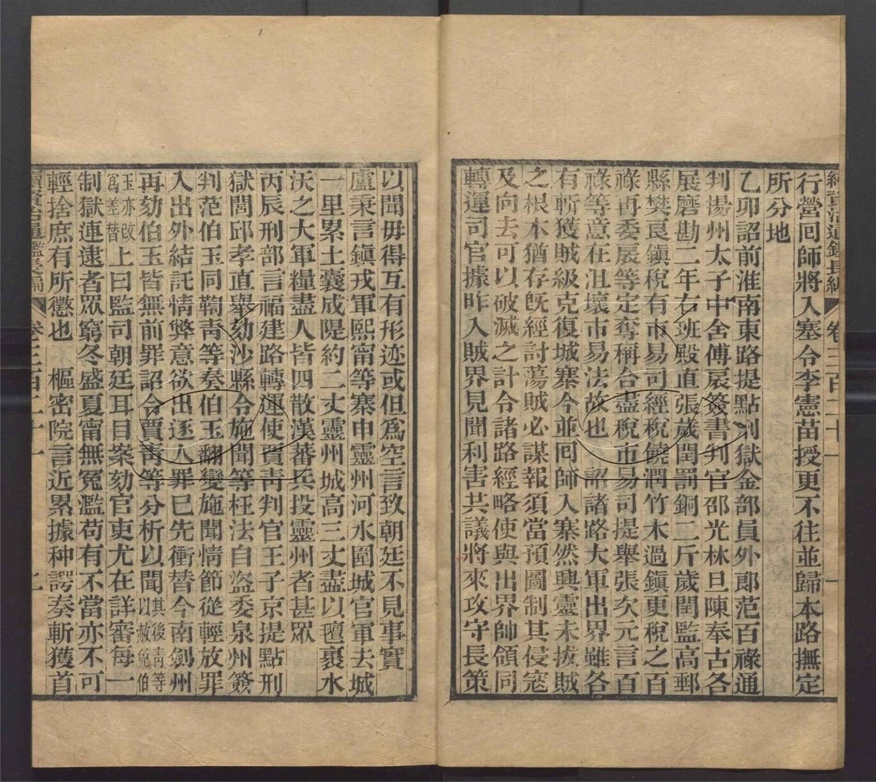 續資治通鑑長編 卷三百二十一
行營回師將入塞令李憲苗授更不往並歸本路撫定
所分地
乙卯詔前淮南東路提點刑獄金部員外郎范百祿通
判揚州太子中舍傅扆簽書判官邵光林旦陳奉古各
展磨勘二年右班殿直張歲閏罰銅二斤歲閏監高郵
縣樊良鎮稅有市易司經稅饒潤竹木過鎮更稅之百
祿再委扆等定奪稱合盡稅市易司提舉張次元言百
祿等意在沮壞市易法故也 詔諸路大軍出界雖各
有斬獲賊級克復城寨今並回師入塞然興靈未拔賊
之根本猶存旣經討蕩賊必謀報須當預圖制其侵寇
及向去可以破滅之計令諸路經略使與出界帥領同
轉運司官據昨入賊界見聞利害共議將來攻守長策
以聞毋得互有形迹或但爲空言致朝廷不見事實
盧秉言鎮戎軍熙甯等寨申靈州河水圍城官軍去城
一里累土囊成隄約二丈靈州城高三丈盡以氊裹水
沃之大軍糧盡人皆四散漢蕃兵投靈州者甚眾
丙辰刑部言福建路轉運使賈青判官王子京提點刑
獄閭邱孝直舉劾沙縣令施聞等枉法自盜委泉州簽
判范伯玉同鞫青等奏伯玉翻變施聞情節從輕放罪
入出外結託情弊意欲出逐人罪已先衝替今南劍州
再劾伯玉皆無前罪詔令賈青等分析以聞其後青等以赦免伯
玉亦改爲差替上曰監司朝廷耳目案劾官吏尤在詳審每一
制獄連逮者眾窮冬盛夏甯無冤濫苟有不當亦不可
輕捨庶有所懲也 樞密院言近累據种諤奏斬獲首
續資治通鑑長編 卷三百二十一